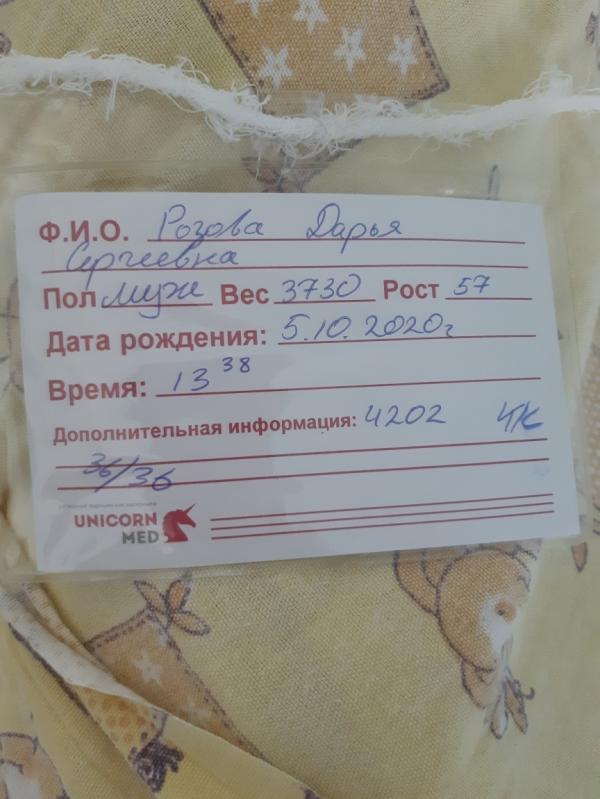 Ф.И.О. Розова Дарья
Сергеевна
Пол муж Вес 3730 Рост 57
Дата рождения: 5.10.2020г
Время: 13 38
Дополнительная информация: 4202 ЧК
36/36
UNICORN
MED